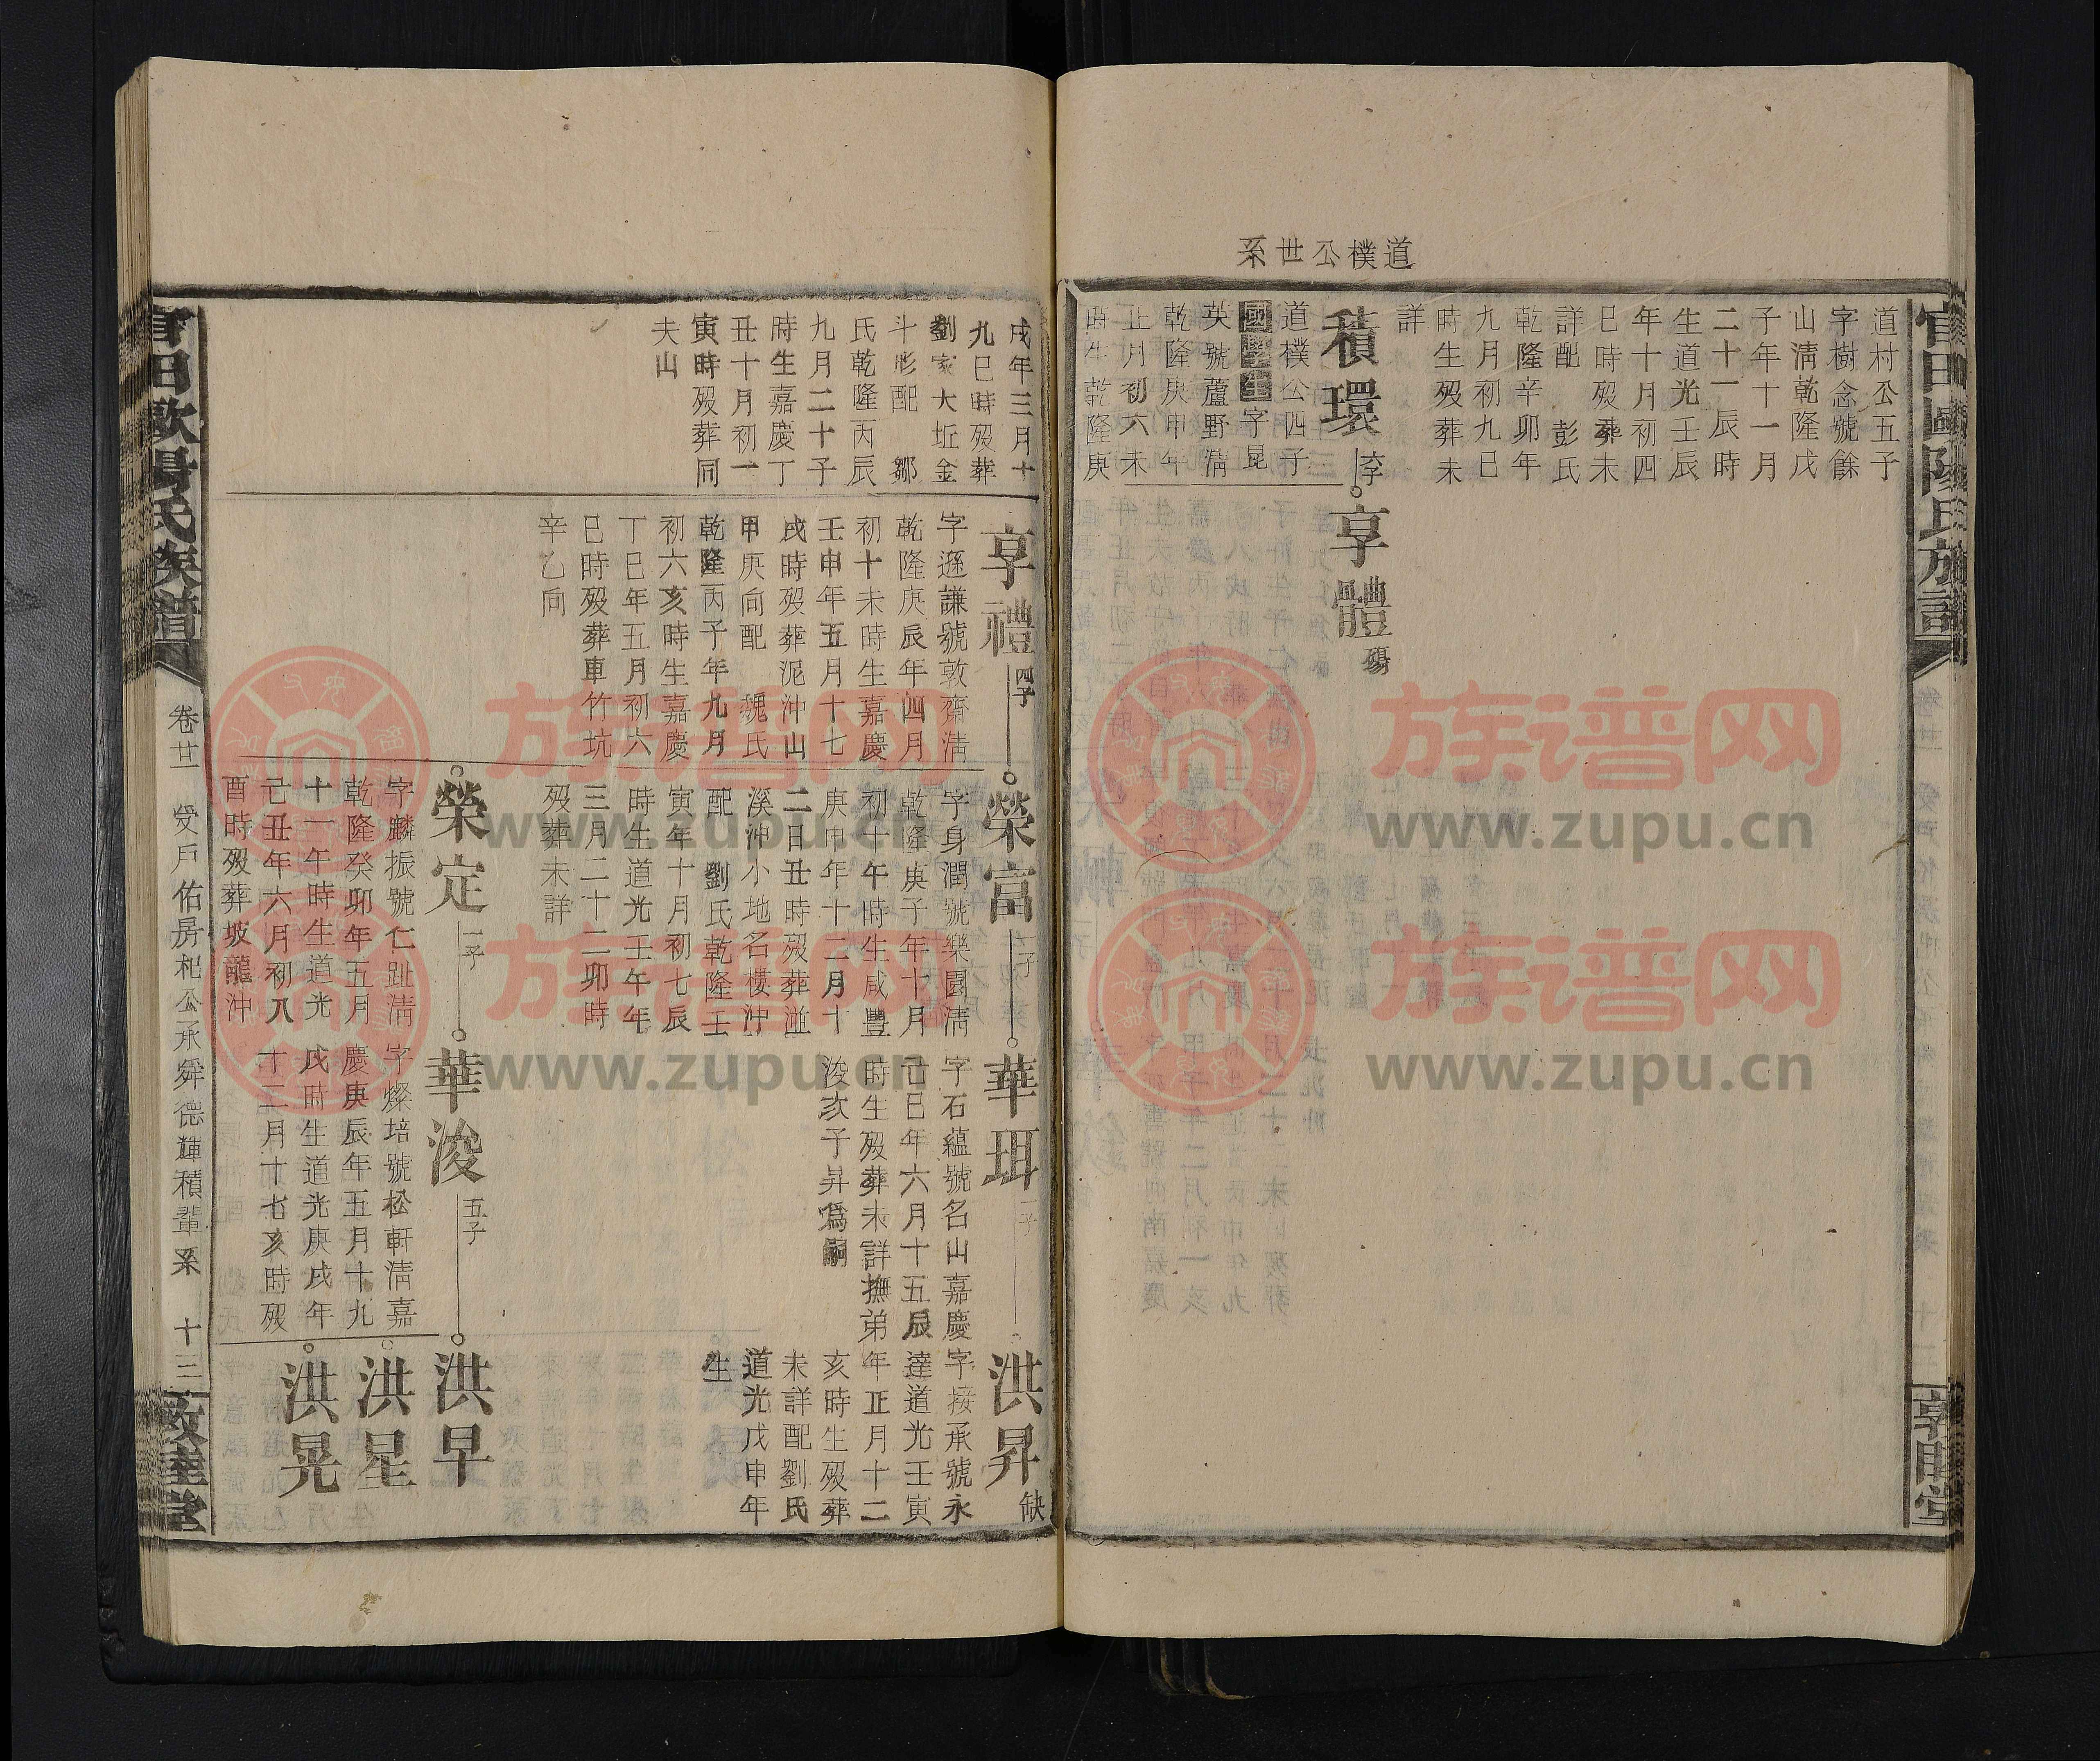 道樸公世系
道村公五子
字樹念號餘
山淸乾隆戊
子年十一月
二十一辰時
生道光壬辰
年十月初四
巳時歿葬未
詳配 彭氏
乾隆辛卯年
九月初九巳
時生歿葬未
詳
積環
李
道樸公四子
國學生字昆
英號蘆野淸
乾隆庚申年
正月初六未
時生乾隆庚
享體
殤
戌年三月十
九巳時歿葬
劉家大坵金
斗形配 鄒
氏乾隆丙辰
九月二十子
時生嘉慶丁
丑十月初一
寅時歿葬同
夫山
享禮
四子
字遜謙號敦齋淸
乾隆庚辰年四月
初十未時生嘉慶
壬申年五月十七
戌時歿葬泥沖山
甲庚向配 魏氏
乾隆丙子年九月
初六亥時生嘉慶
丁巳年五月初六
巳時歿葬車竹坑
辛乙向
榮富
一子
字身潤號樂園淸
乾隆庚子年十月
初十午時生咸豐
庚申年十二月十
二日丑時歿葬湴
溪沖小地名樓沖
配 劉氏乾隆壬
寅年十月初七辰
時生道光壬午年
三月二十二卯時
歿葬未詳
華珥
一子
字石蘊號名山嘉慶
己巳年六月十五辰
時生歿葬未詳撫弟
浚次子昇爲嗣
洪昇
缺
字接承號永
達道光壬寅
年正月十二
亥時生歿葬
未詳配劉氏
道光戊申年
生
榮定
一子
字麟振號仁趾淸
乾隆癸卯年五月
十一午時生道光
己丑年六月初八
酉時歿葬坡龍沖
華浚
五子
字燦培號松軒淸嘉
慶庚辰年五月十九
戌時生道光庚戌年
十二月十七亥時歿
洪早
洪星
洪晃
官田歐陽氏族譜
卷廿一 受戶佑房杞公承舜德輝積輩系 十三
敦睦堂
族谱网
www.zupu.cn
族谱网
www.zupu.cn
族谱网
www.zupu.cn
族谱网
www.zupu.cn